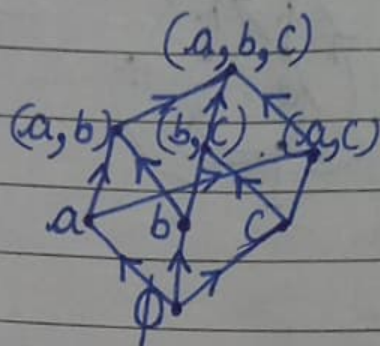 (a, b, c)
(a, b) (b, c) (a, c)
a b c
ϕ